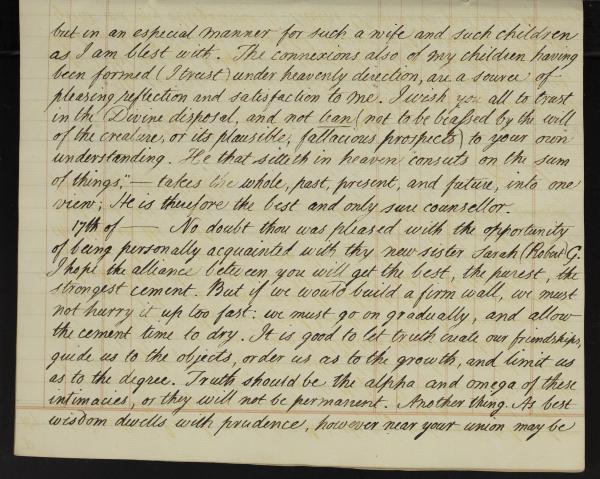 but in an especial manner for such a wife and such children
as I am blest with. The connexions also of my children having
been formed (I trust) under heavenly direction, are a source of
pleasing reflection and satisfaction to me. I wish you all to trust
in the Divine disposal, and not lean (not to be biassed by the will
of the creature, or its plausible, fallacious prospects) to your own
understanding. He that sitteth in heaven consults on the sum
of things," — takes the whole, past, present, and future, into one
view; He is therefore the best and only sure counsellor.
17th of — No doubt thou was pleased with the opportunity
of being personally acquainted with thy new sister Sarah (Robert) G.
I hope the alliance between you will get the best, the purest, the
strongest cement. But if we would build a firm wall, we must
not hurry it up too fast: we must go on gradually, and allow
the cement time to dry. It is good to let truth create our friendships,
guide us to the objects, order us as to the growth, and limit us
as to the degree. Truth should be the alpha and omega of these
intimacies, or they will not be permanent. Another thing. As best
wisdom dwells with prudence, however near your union may be